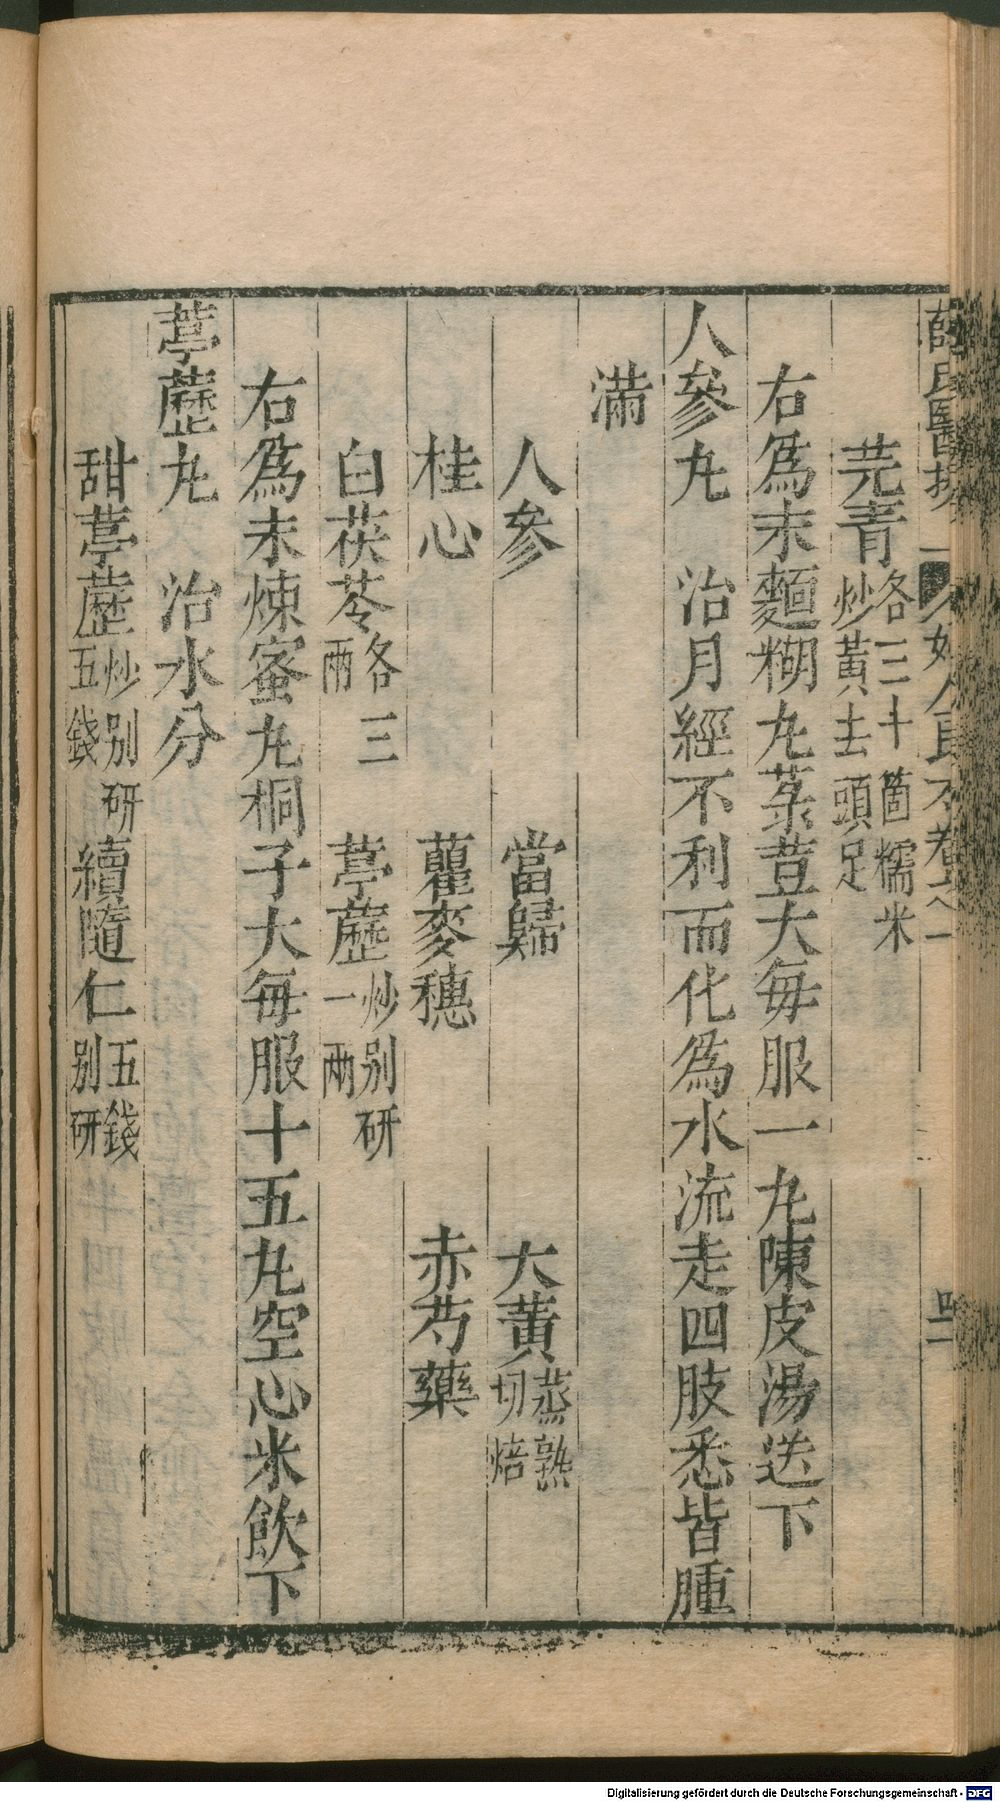 芫青各三十箇糯米炒黃去頭足
右爲末麵糊丸菉荳大每服一丸陳皮湯送下
人參丸　治月經不利而化爲水流走四肢悉皆腫
滿
人參　當歸　大黃蒸熟切焙
桂心　藋麥穗　赤芍藥
白茯苓各三兩　葶藶炒別研一兩
右爲末煉蜜丸桐子大每服十五丸空心米飲下
葶藶丸　治水分
甜葶藶炒別研五錢　續隨仁五錢別研
Digitalisierung gefördert durch die Deutsche Forschungsgemeinschaft - DFG